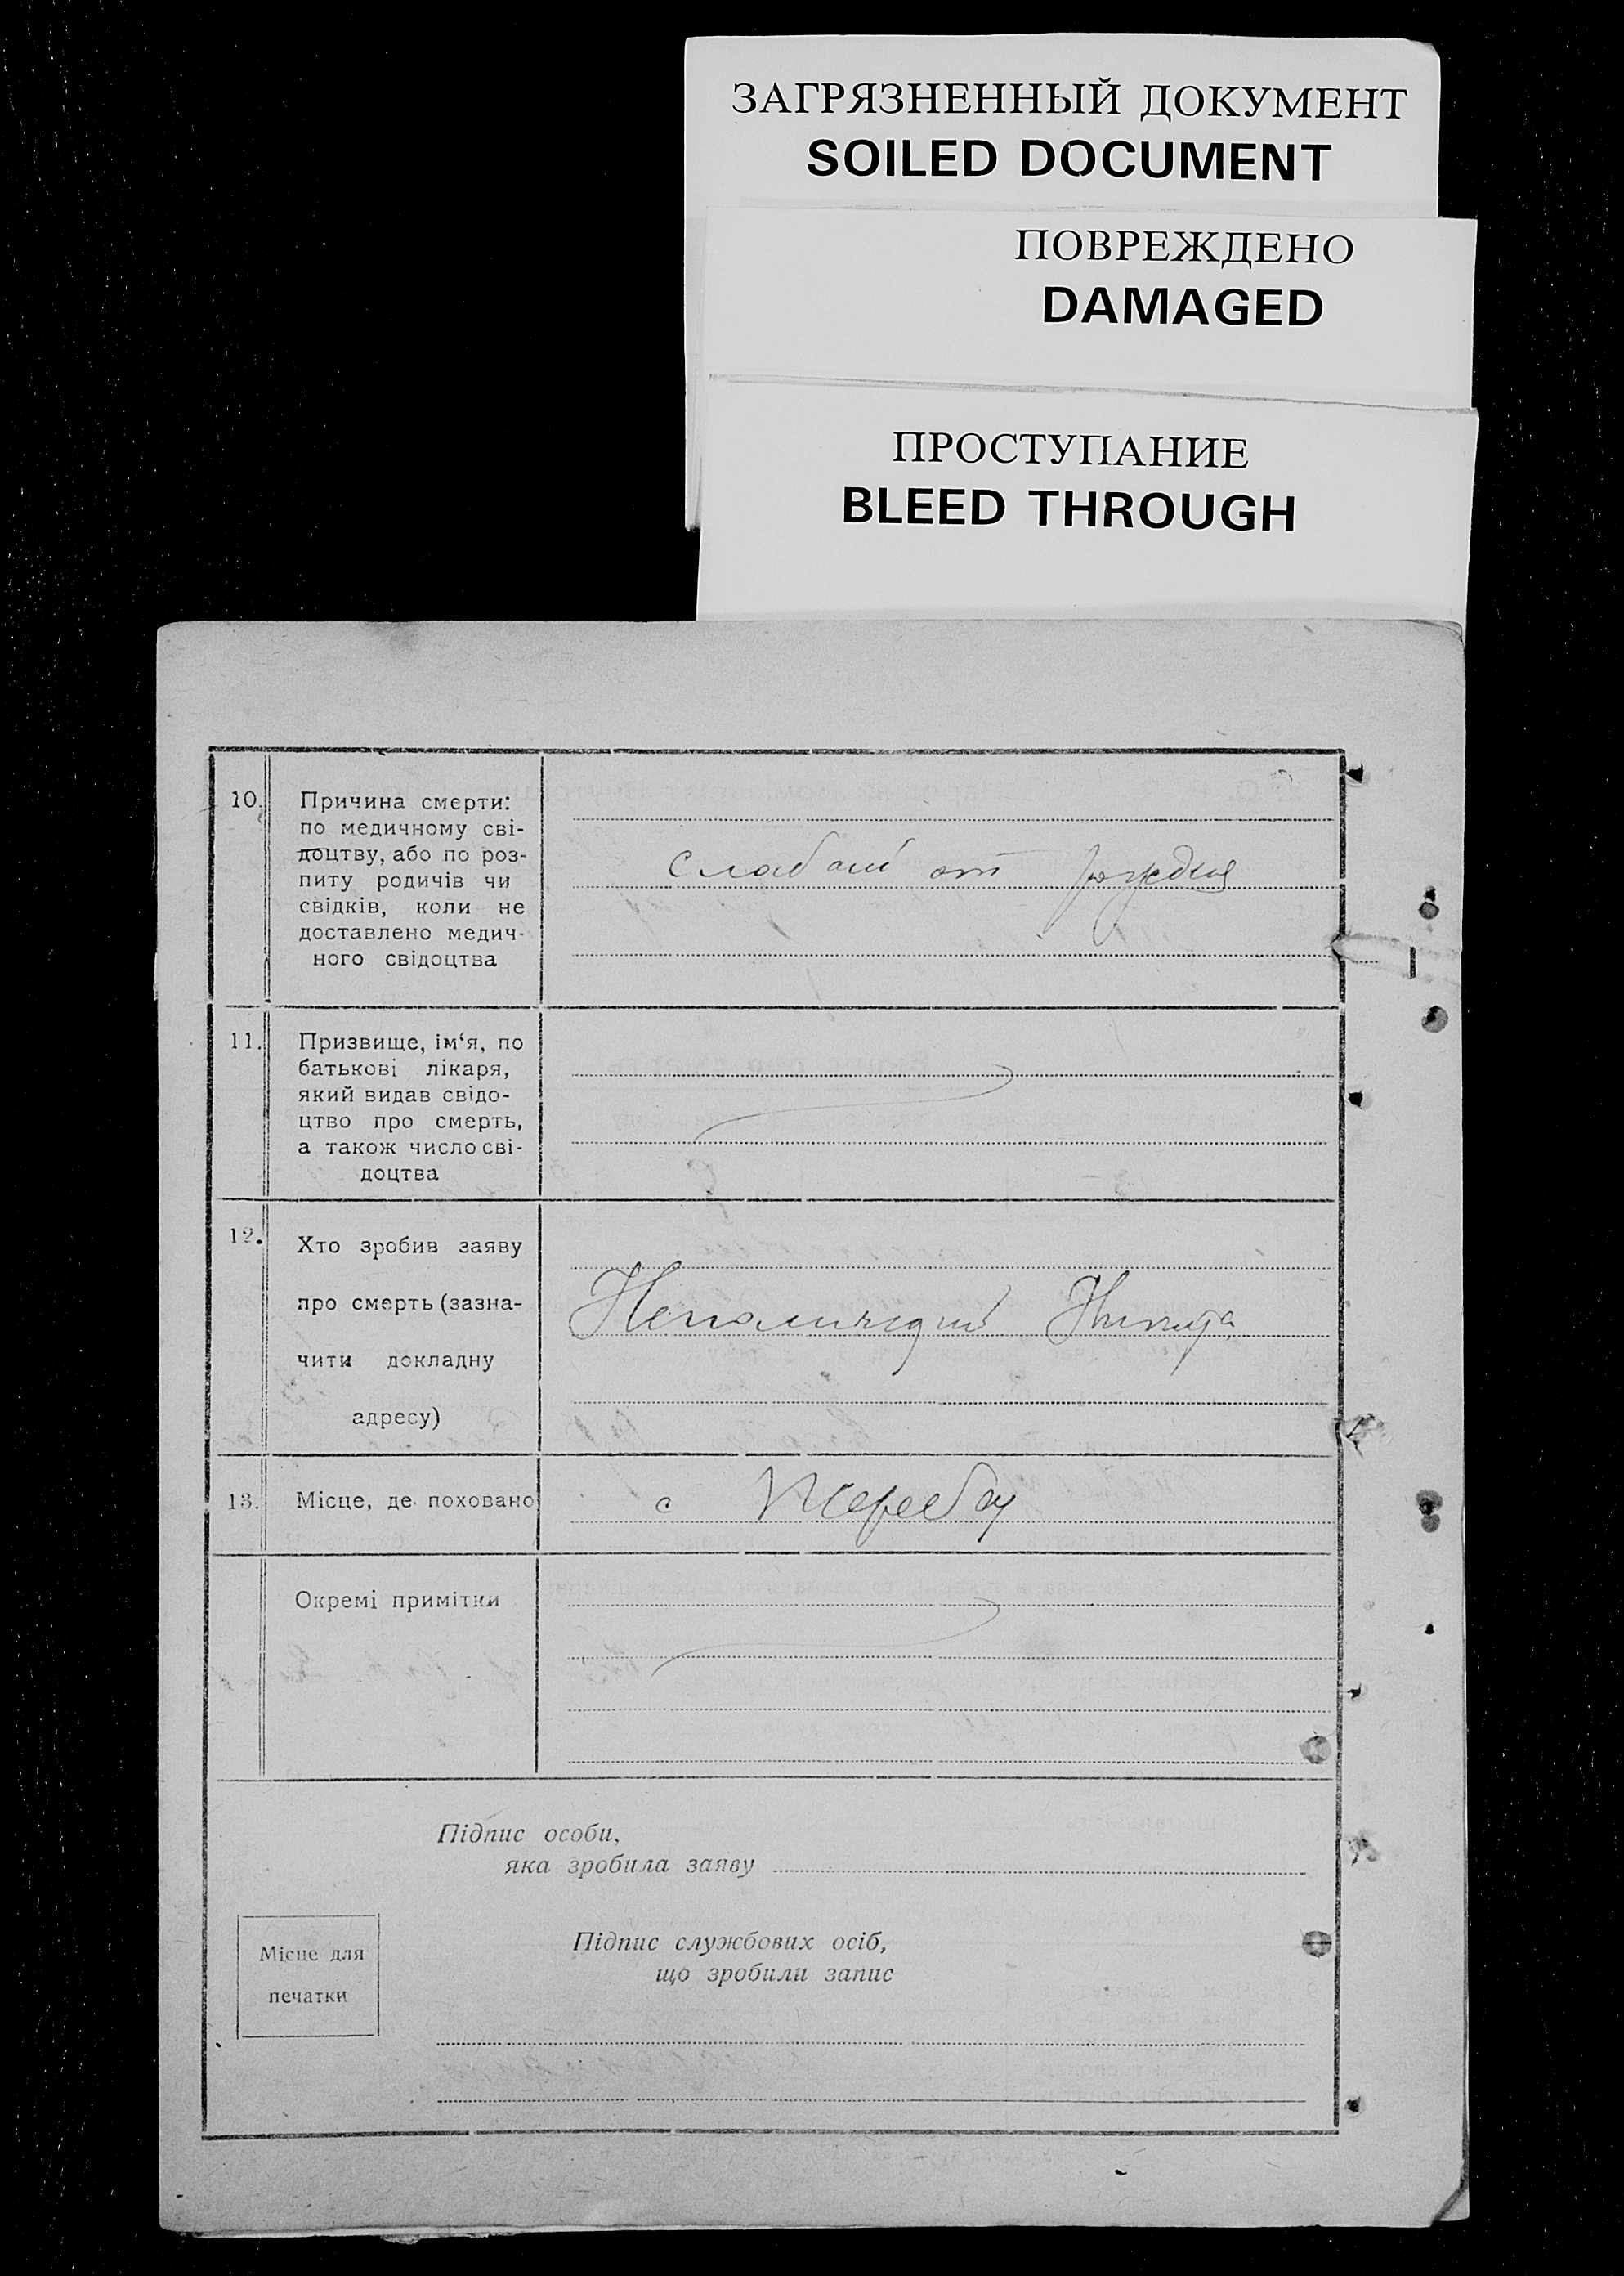 ЗАГРЯЗНЕННЫЙ ДОКУМЕНТ
SOILED DOCUMENT
ПОВРЕЖДЕНО
DAMAGED
ПРОСТУПАНИЕ
BLEED THROUGH
10.
Причина смерти:
по медичному сві-
доцтву, або по роз-
питу родичів чи
свідків, коли не
доставлено медич-
ного свідоцтва
слабай от
11.
Призвище, ім‘я, по
батькові лікаря,
який видав свідо-
цтво про смерть,
а також число сві-
доцтва
12.
Хто зробив заяву
про смерть (зазна-
чити докладну
адресу)
13.
Місце, де поховано
с
Окремі примітки
Підпис особи,
яка зробила заяву
Місце для
печатки
Підпис службових осіб,
що зробили запис